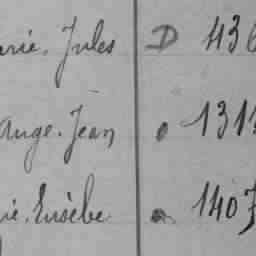 arie. Jules D 436
Ange. Jean 1313
ie. Eusèbe 1407